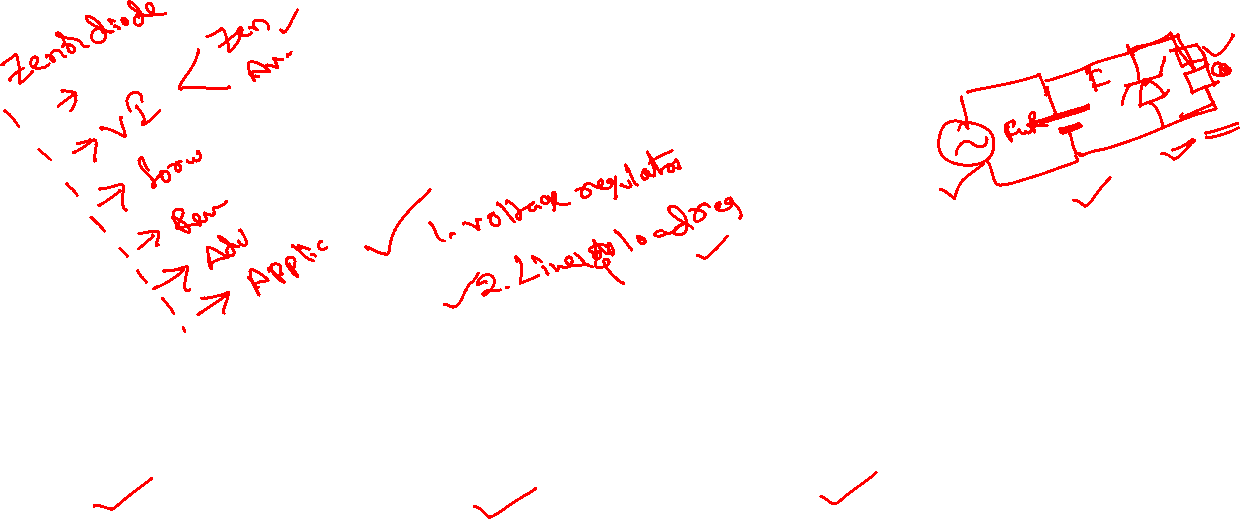 Zener diode
VI
Zen
Av.
Forw
Rev
Adv
Applic
1. voltage regulator
2. Line & load reg